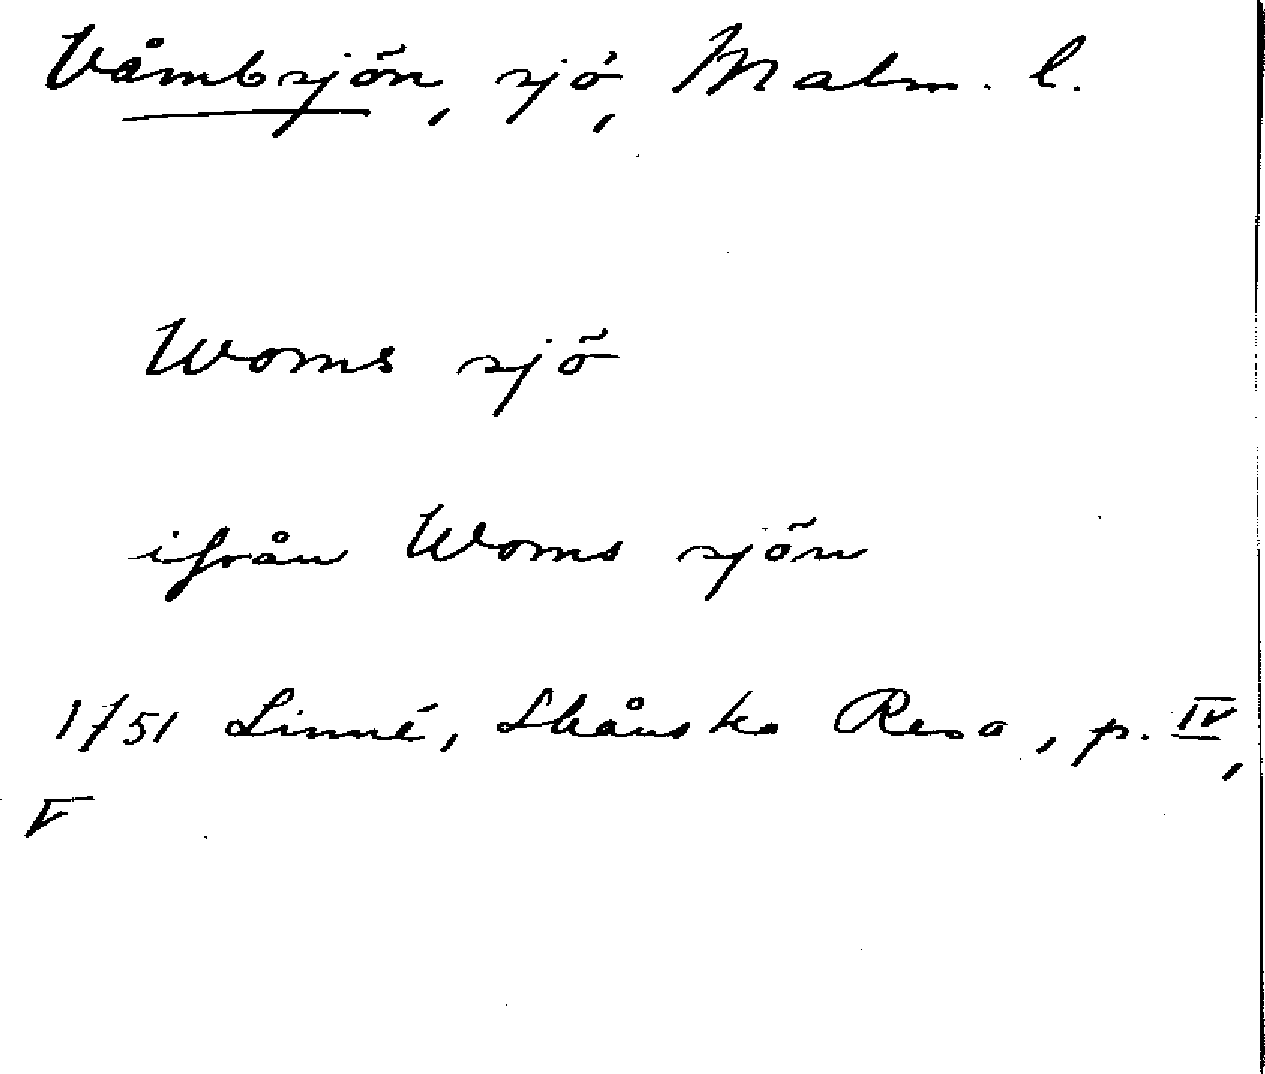 Våmbsjön, sjö, Malm. l.
Woms sjö
ifrån Woms sjön
1751 Linné, Skånska Resa, p. IV,
V